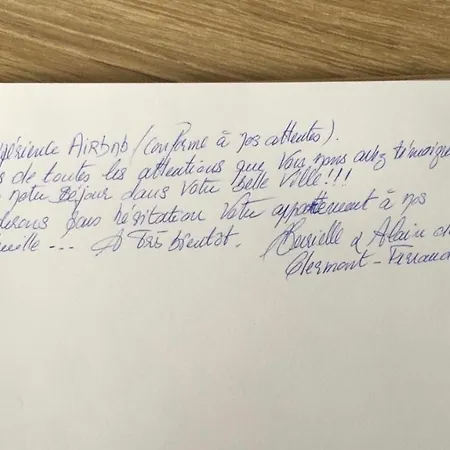 périence Airbnb (conforme à nos attentes).
s de toutes les attentions que vous nous avez témoigné
notre séjour dans votre belle ville!!!
derons sans hésitation votre appartement à nos
uelle --- A très bientôt. & Alain de
Clermont-Ferrand